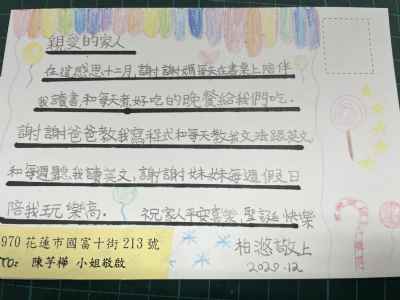 親愛的家人
在這感恩十二月,謝謝媽每天在書桌上陪伴
我讀書和每天煮好吃的晚餐給我們吃.
謝謝爸爸教我寫程式和每天教我文法跟英文
和每週聽我讀英文,謝謝妹妹每週假日
陪我玩樂高. 祝家人平安喜樂,聖誕快樂
柏悠敬上
2020.12
970 花蓮市國富十街 213 號
TO: 陳芓樺 小姐敬啟